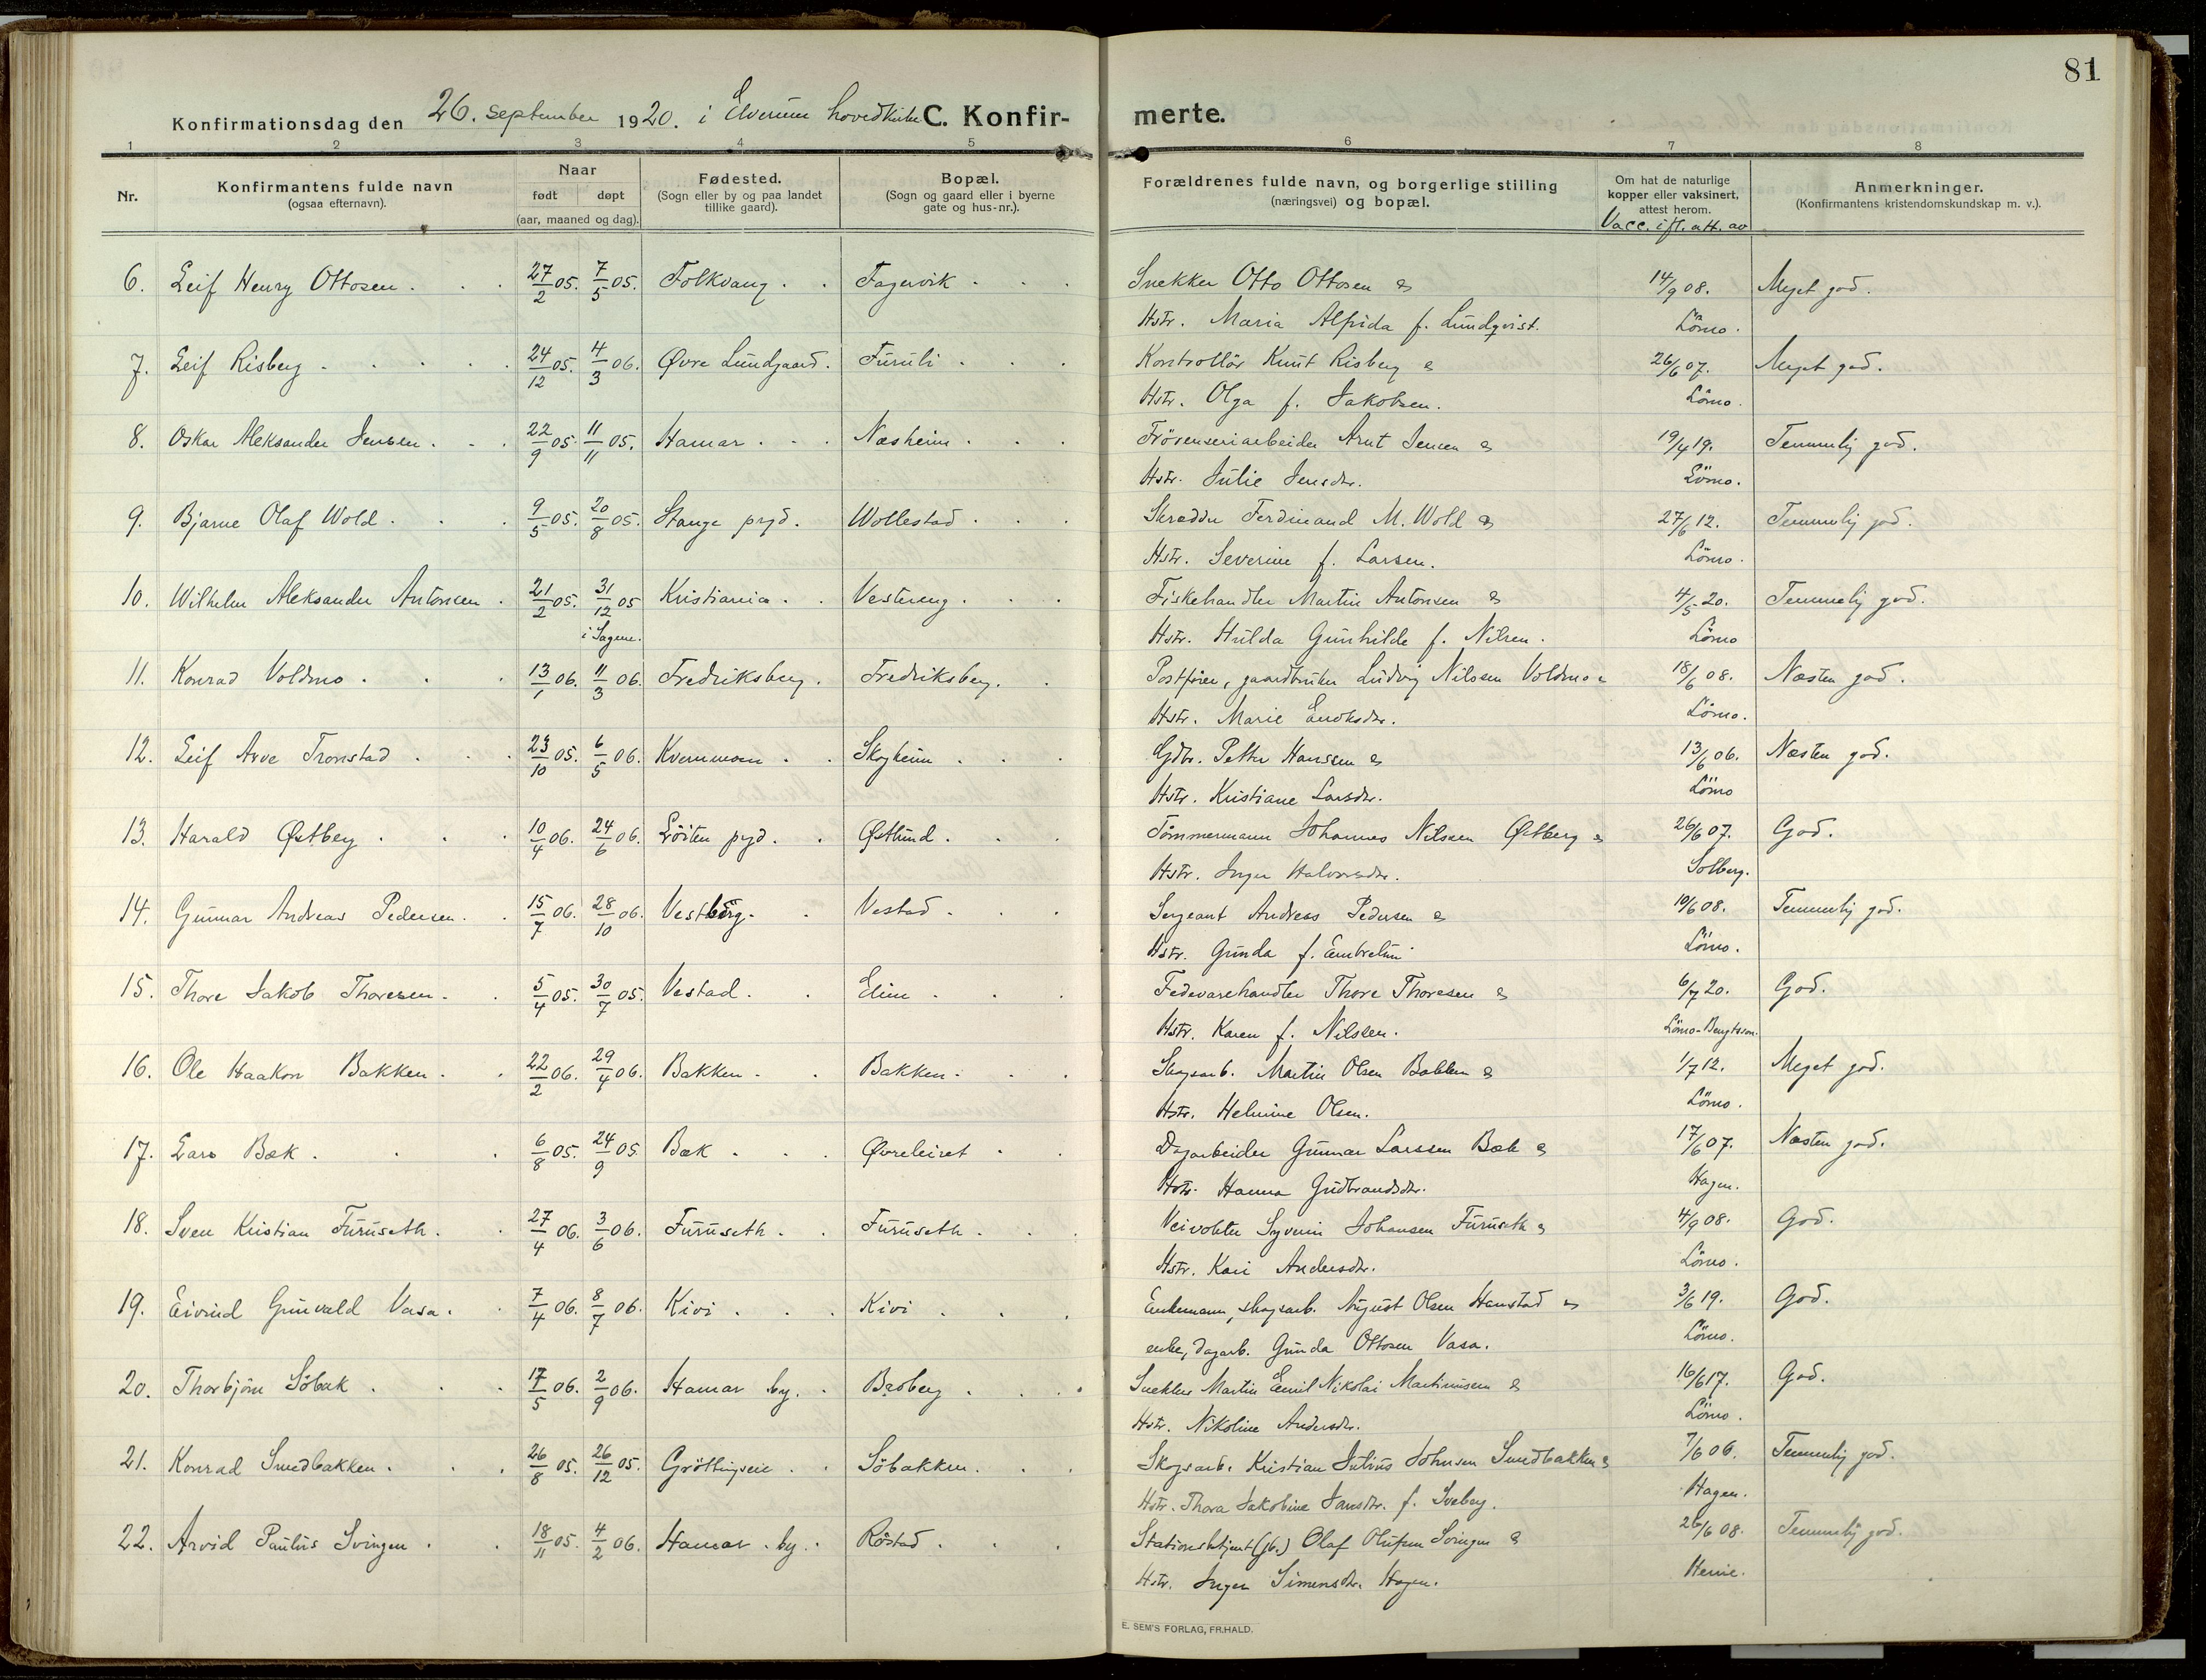 81
Konfirmationsdag den 26. september 1920. i Elverum hovedkirke C. Konfir- merte.
1 2 3 4 5 6 7 8
Nr. Konfirmantens fulde navn (ogsaa efternavn). Naar født døpt (aar, maaned og dag). Fødested. (Sogn eller by og paa landet tillike gaard). Bopæl. (Sogn og gaard eller i byerne gate og hus-nr.). Forældrenes fulde navn, og borgerlige stilling (næringsvei) og bopæl. Om hat de naturlige kopper eller vaksinert, attest herom. Vacc. ifl. att. av Anmerkninger. (Konfirmantens kristendomskundskap m. v.).
6. Leif Henry Ottosen. 27/2 05. 7/5 05. Folkvang. Fagervik. Snekker Otto Ottosen & 14/9 08. Meget god.
Hstr. Maria Alfrida f. Lundqvist. Lömo.
7. Leif Risberg. 24/12 05. 4/3 06. Øvre Lundgaard. Furuli. Kontrollör Knut Risberg & 26/6 07. Meget god.
Hstr. Olga f. Jakobsen. Lömo.
8. Oskar Aleksander Jensen. 22/9 05. 11/11 05. Hamar. Næsheim. Frörenseriarbeider Arnt Jensen & 19/4 19. Temmelig god.
Hstr. Julie Jensdtr. Lömo.
9. Bjarne Olaf Wold. 9/5 05. 20/8 05. Stange prgd. Wollestad. Skrædder Ferdinand M. Wold & 27/6 12. Temmelig god.
Hstr. Severine f. Larsen. Lömo.
10. Wilhelm Aleksander Antonsen. 21/2 05. 31/12 05 Kristiania. Vestereng. Fiskehandler Martin Antonsen & 4/5 20. Temmelig god.
i Sagene. Hstr. Hulda Gunhilde f. Nilsen. Lömo
11. Konrad Voldmo. 13/1 06. 11/3 06. Fredriksberg. Fredriksberg. Postfører, gaardbruker Ludvig Nilssen Voldmo & 18/6 08. Næsten god.
Hstr. Marie Eriksdtr. Lömo.
12. Leif Arve Tronstad. 23/10 05. 6/5 06. Kvernmoen. Skogheim. Gdbr. Petter Hanssen & 13/6 06. Næsten god.
Hstr. Kristiane Larsdtr. Lömo
13. Harald Østberg. 10/4 06. 24/6 06. Löiten prgd. Østlund. Tömmermann Johannes Nilssen Østberg & 26/6 07. God.
Hstr. Inger Halvorsdtr. Solberg.
14. Gunnar Andreas Pedersen. 15/7 06. 28/10 06. Vestberg. Vestad. Sergeant Andreas Pedersen & 10/6 08. Temmelig god.
Hstr. Gunda f. Embretsen. Lömo.
15. Thore Jakob Thoresen. 5/4 05. 30/7 05. Vestad. Elim. Fedevarehandler Thore Thoresen & 6/7 20. God.
Hstr. Karen f. Nilssen. Lömo-Bengtsson.
16. Ole Haakon Bakken. 22/2 06. 29/4 06. Bakken. Bakken. Skogsarb. Martin Olsen Bakken & 1/7 12. Meget god.
Hstr. Helmine Olsen. Lömo.
17. Lars Bæk. 6/8 05. 24/9 05. Bæk. Øvreleiret. Dagarbeider Gunnar Larssen Bæk & 17/6 07. Næsten god.
Hstr. Hanna Gudbrandsdtr. Hagen.
18. Sven Kristian Furuseth. 27/4 06. 3/6 06. Furuseth. Furuseth. Veivokter Syverin Johansen Furuseth & 4/9 08. God.
Hstr. Kari Andersdtr. Lömo.
19. Eivind Gunvald Vasa. 7/4 06. 8/7 06. Kivi. Kivi. Enkemann, skogsarb. August Olsen Hanstad & 3/6 19. God.
enke, dagarb. Gunda Ottosen Vasa. Lömo.
20. Thorbjörn Söbak. 17/5 06. 2/9 06. Hamar by. Braberg. Snekker Martin Emil Nikolai Martinussen & 16/6 17. God.
Hstr. Nikoline Andersdtr. Lömo.
21. Konrad Smedbakken. 26/8 05. 26/12 05. Gröttingseie. Söbakken. Skogsarb. Kristian Julius Johnsen Smedbakken & 7/6 06. Temmelig god.
Hstr. Thora Jakobine Jansdtr. f. Sveberg. Hagen.
22. Arvid Paulus Svingen. 18/11 05. 4/2 06. Hamar by. Röstad. Stationsbetjent (jb.) Olaf Olufsen Svingen & 26/6 08. Temmelig god.
Hstr. Inger Simensdtr. Hagen. Herne.
E. SEM'S FORLAG, FR.HALD.